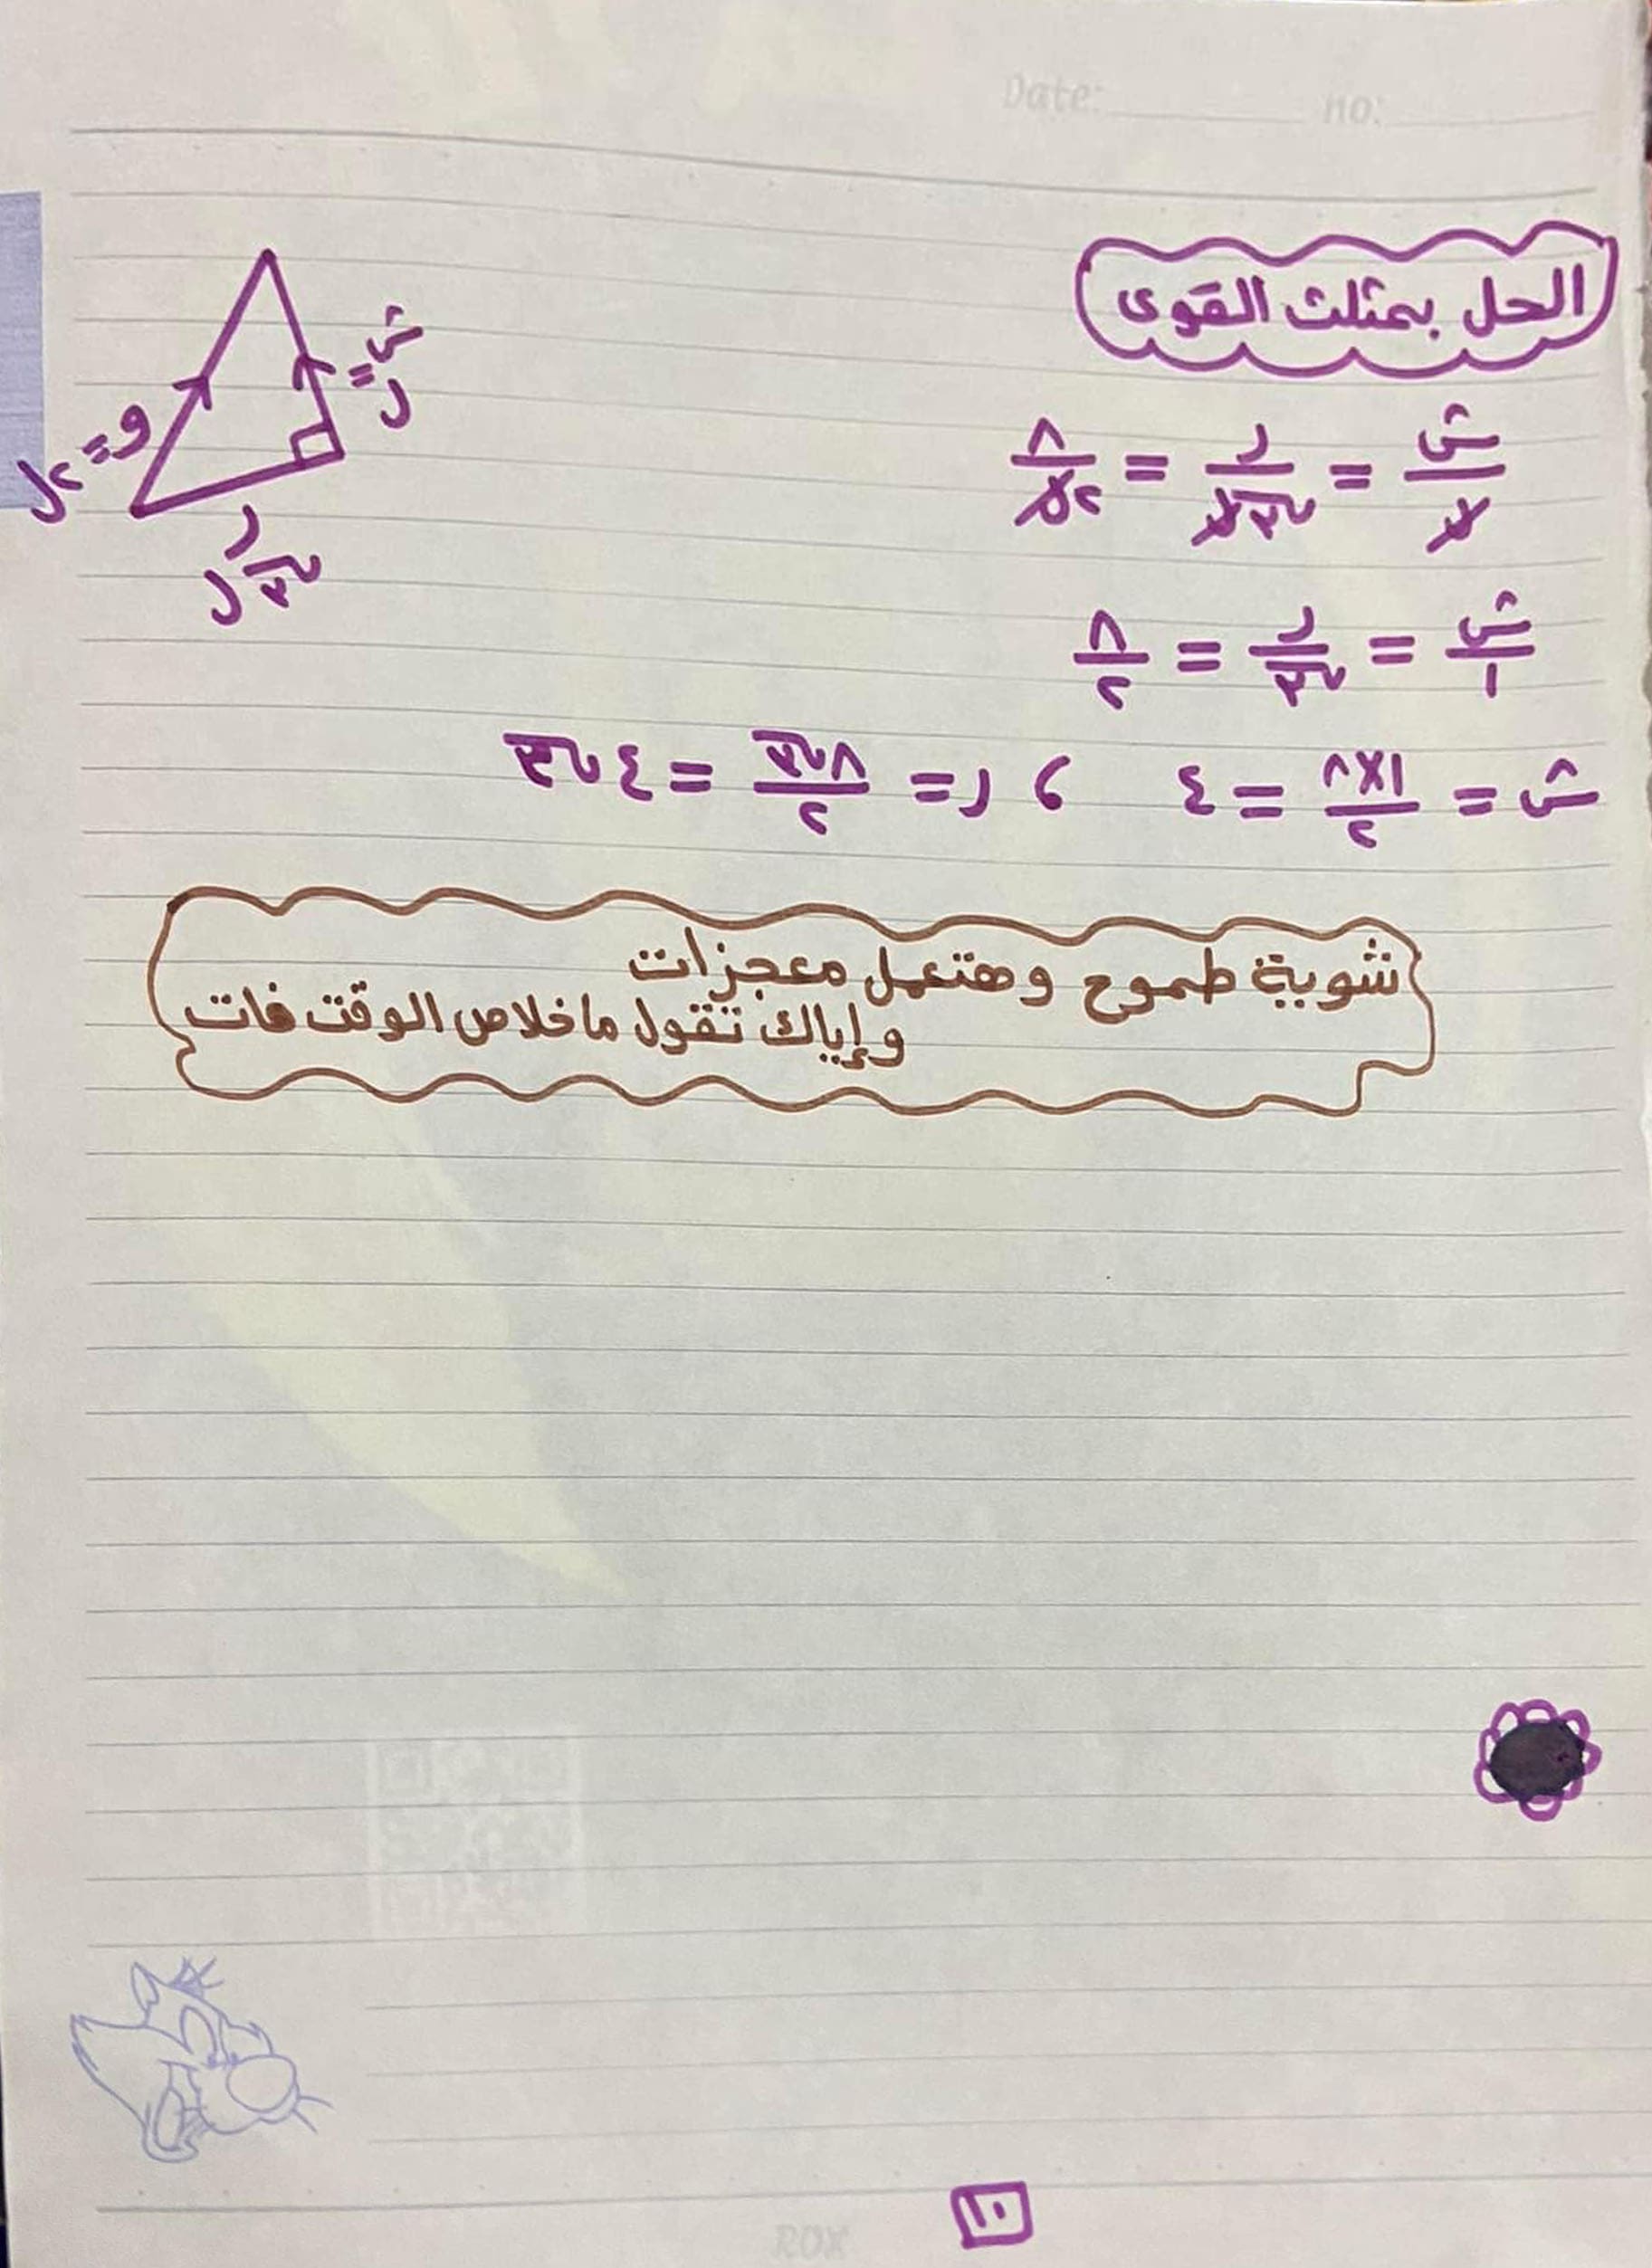 Date: no:
الحل بمثلث القوى
ش = ل
و = ٢ل
ر
√٣ ل
ش/ل = ر/√٣ل = ٨/٢ل
ش/١ = ر/√٣ = ٨/٢
ش = ١×٨/٢ = ٤ , ر = ٨√٣/٢ = ٤√٣
شوية طموح وهتعمل معجزات
وإياك تقول ماخلاص الوقت فات
١٠
ROX